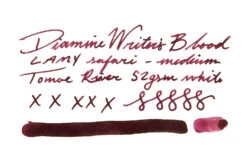 Diamine Writer's Blood
LAMY safari - medium
Tomoe River 52gsm white
X X XX X SSSSS